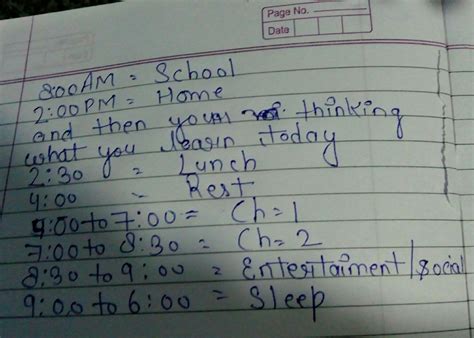 Page No.
Date
8:00 AM = School
2:00 PM = Home
and then your thinking
what you learn today
2:30 = Lunch
4:00 = Rest
4:00 to 7:00 = Ch=1
7:00 to 8:30 = Ch=2
8:30 to 9:00 = Entertaiment/social
9:00 to 6:00 = Sleep